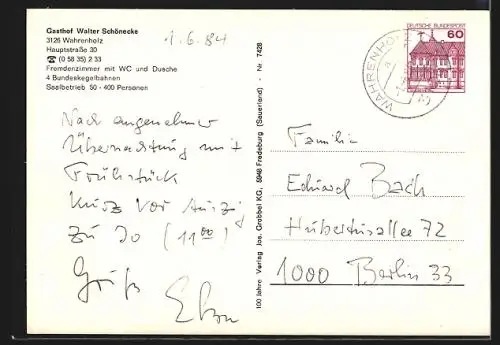 Gasthof Walter Schönecke
3126 Wahrenholz
Hauptstraße 30
☎ (0 58 35) 2 33
Fremdenzimmer mit WC und Dusche
4 Bundeskegelbahnen
Saalbetrieb 50 - 400 Personen
1.6.84
Nach angenehmer
Übernachtung mit
Frühstück
kurz vor
zu Jo (11⁰⁰)
Gruß
100 Jahre Verlag Jos. Grobbel KG, 5948 Fredeburg (Sauerland) · Nr. 7428
DEUTSCHE BUNDESPOST
60
WAHRENHO
Familie
Eduard Bach
Hubertusallee 72
1000 Berlin 33